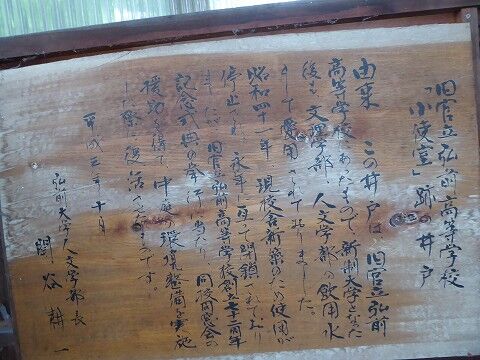 旧官立弘前高等学校
「小使室」跡の井戸
由来 この井戸は 旧官立弘前
高等学校にあったもので、新制大学となった
後も、文理学部・人文学部の飲用水
として愛用されておりました。
昭和四十一年、現校舎新築のため使用が
停止され、永年に亘って閉鎖されており
ましたが、旧官立弘前高等学校創立七十周年
記念式典の挙行に当たり、同校同窓会の
援助を得て、中庭の環境整備を実施
した際に復活させたものです。
平成三年十月
弘前大学人文学部長
関谷耕一